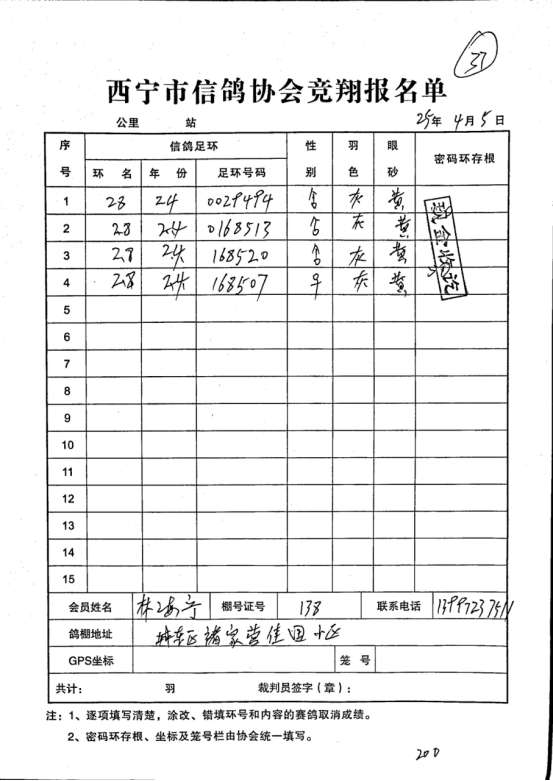 33
西宁市信鸽协会竞翔报名单
公里 站 25年 4月 5日
序号 信鸽足环 性别 羽色 眼砂 密码环存根
环 名 年 份 足环号码
1 28 24 0029494 灰 黄
2 28 24 0168513 灰 黄
3 28 24 168520 灰 黄
4 28 24 168507 灰 黄
现金收讫
5
6
7
8
9
10
11
12
13
14
15
会员姓名 林海宁 棚号证号 138 联系电话
鸽棚地址 城东区褚家营佳园小区
GPS坐标 笼 号
共计: 羽 裁判员签字(章):
注:1、逐项填写清楚,涂改、错填环号和内容的赛鸽取消成绩。
2、密码环存根、坐标及笼号栏由协会统一填写。
200